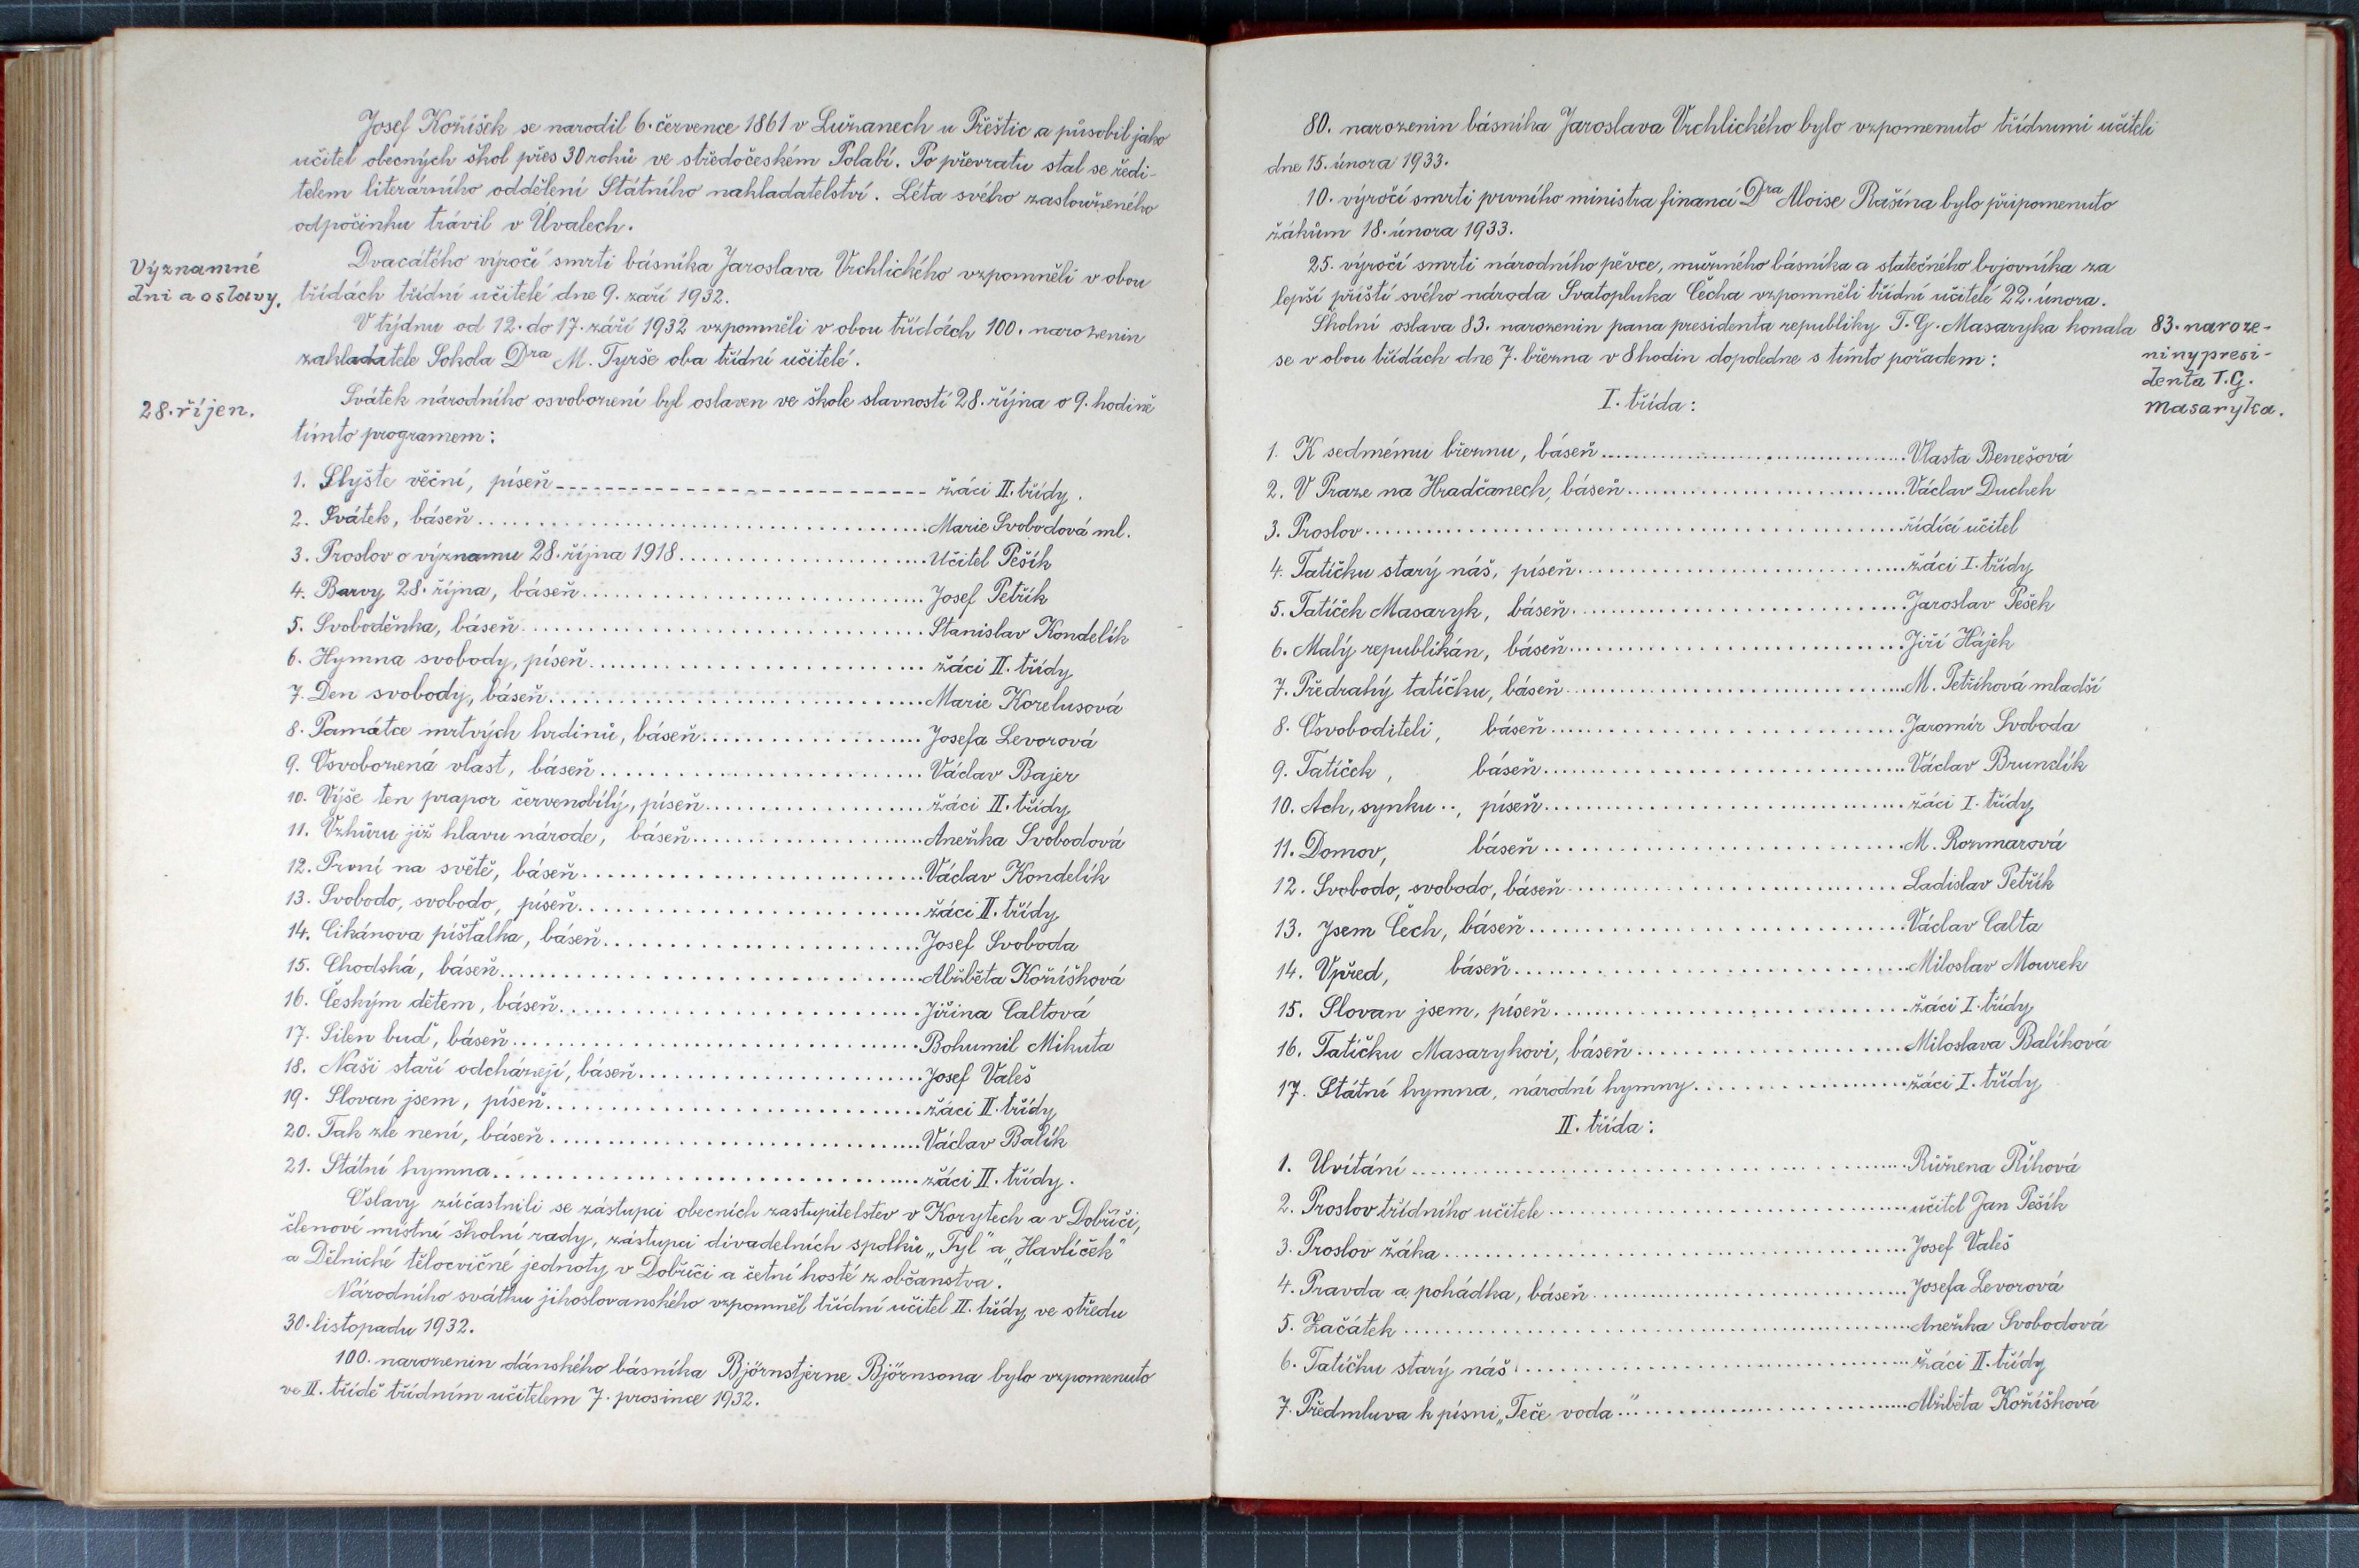 Josef Kožíšek se narodil 6. července 1861 v Lužanech u Přeštic a působil jako
učitel obecných škol přes 30 roků ve středočeském Polabí. Po převratu stal se ředi-
telem literárního oddělení Státního nakladatelství. Léta svého zaslouženého
odpočinku trávil v Úvalech.
Významné
dni a oslavy.
Dvacátého výročí smrti básníka Jaroslava Vrchlického vzpomněli v obou
třídách třídní učitelé dne 9. září 1932.
V týdnu od 12. do 17. září 1932 vzpomněli v obou třídách 100. narozenin
zakladatele Sokola Dra M. Tyrše oba třídní učitelé.
28. říjen.
Svátek národního osvobození byl oslaven ve škole slavností 28. října o 9. hodině
tímto programem:
1. Slyšte věční, píseň ---------- žáci II. třídy.
2. Svátek, báseň .......... Marie Svobodová ml.
3. Proslov o významu 28. října 1918 .......... Učitel Pešík
4. Barvy 28. října, báseň .......... Josef Petřík
5. Svoboděnka, báseň .......... Stanislav Kondelík
6. Hymna svobody, píseň .......... žáci II. třídy
7. Den svobody, báseň .......... Marie Korelusová
8. Památce mrtvých hrdinů, báseň .......... Josefa Levorová
9. Osvobozená vlast, báseň .......... Václav Bajer
10. Výše ten prapor červenobílý, píseň .......... žáci II. třídy
11. Vzhůru již hlavu národe, báseň .......... Anežka Svobodová
12. První na světě, báseň .......... Václav Kondelík
13. Svobodo, svobodo, píseň .......... žáci II. třídy
14. Cikánova píšťalka, báseň .......... Josef Svoboda
15. Chodská, báseň .......... Alžběta Kožíšková
16. Českým dětem, báseň .......... Jiřina Caltová
17. Silen buď, báseň .......... Bohumil Mikuta
18. Naši staří odcházejí, báseň .......... Josef Valeš
19. Slovan jsem, píseň .......... žáci II. třídy
20. Tak zle není, báseň .......... Václav Balík
21. Státní hymna .......... žáci II. třídy.
Oslavy zúčastnili se zástupci obecních zastupitelstev v Korytech a v Dobříči,
členové místní školní rady, zástupci divadelních spolků „Tyl" a „Havlíček"
a Dělnické tělocvičné jednoty v Dobříči a četní hosté z občanstva.
Národního svátku jihoslovanského vzpomněl třídní učitel II. třídy ve středu
30. listopadu 1932.
100. narozenin dánského básníka Björnstjerne Björnsona bylo vzpomenuto
ve II. třídě třídním učitelem 7. prosince 1932.
80. narozenin básníka Jaroslava Vrchlického bylo vzpomenuto třídnimi učiteli
dne 15. února 1933.
10. výročí smrti prvního ministra financí Dra Aloise Rašína bylo připomenuto
žákům 18. února 1933.
25. výročí smrti národního pěvce, mužného básníka a statečného bojovníka za
lepší příští svého národa Svatopluka Čecha vzpomněli třídní učitelé 22. února.
Školní oslava 83. narozenin pana presidenta republiky T. G. Masaryka konala
se v obou třídách dne 7. března v 8 hodin dopoledne s tímto pořadem:
83. naroze-
niny presi-
denta T. G.
Masaryka.
I. třída:
1. K sedmému březnu, báseň .......... Vlasta Benešová
2. V Praze na Hradčanech, báseň .......... Václav Duchek
3. Proslov .......... řídící učitel
4. Tatíčku starý náš, píseň .......... žáci I. třídy
5. Tatíček Masaryk, báseň .......... Jaroslav Pešek
6. Malý republikán, báseň .......... Jiří Hájek
7. Předrahý tatíčku, báseň .......... M. Petříková mladší
8. Osvoboditeli, báseň .......... Jaromír Svoboda
9. Tatíček, báseň .......... Václav Brundík
10. Ach, synku .., píseň .......... žáci I. třídy
11. Domov, báseň .......... M. Rozmarová
12. Svobodo, svobodo, báseň .......... Ladislav Petřík
13. Jsem Čech, báseň .......... Václav Calta
14. Vpřed, báseň .......... Miloslav Mourek
15. Slovan jsem, píseň .......... žáci I. třídy
16. Tatíčku Masarykovi, báseň .......... Miloslava Balíková
17. Státní hymna, národní hymny .......... žáci I. třídy
II. třída:
1. Uvítání .......... Růžena Říhová
2. Proslov třídního učitele .......... učitel Jan Pešík
3. Proslov žáka .......... Josef Valeš
4. Pravda a pohádka, báseň .......... Josefa Levorová
5. Začátek .......... Anežka Svobodová
6. Tatíčku starý náš .......... žáci II. třídy
7. Předmluva k písni „Teče voda .." .......... Alžběta Kožíšková